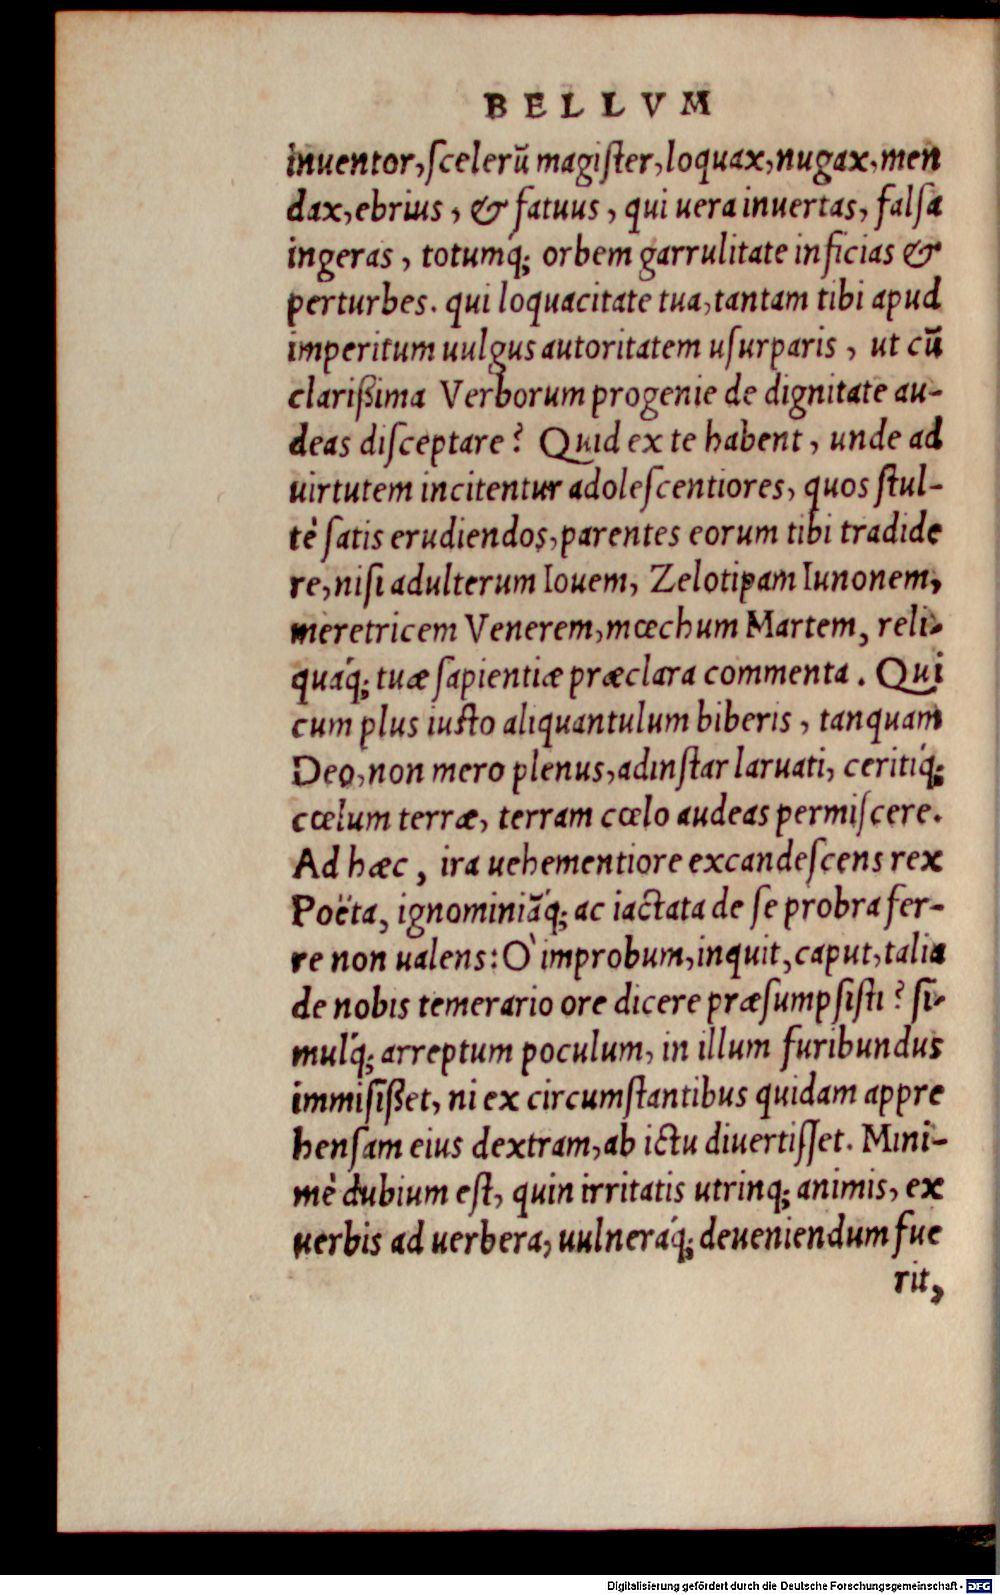 BELLVM
inuentor, ſcelerū magiſter, loquax, nugax, men
dax, ebrius, & fatuus, qui uera inuertas, falſa
ingeras, totumq́; orbem garrulitate inficias &
perturbes. qui loquacitate tua, tantam tibi apud
imperitum uulgus autoritatem uſurparis, ut cū
clarißima Verborum progenie de dignitate au-
deas diſceptare? Quid ex te habent, unde ad
uirtutem incitentur adoleſcentiores, quos ſtul-
tè ſatis erudiendos, parentes eorum tibi tradide
re, niſi adulterum Iouem, Zelotipam Iunonem,
meretricem Venerem, mœchum Martem, reli-
quáq́; tuæ ſapientiæ præclara commenta. Qui
cum plus iuſto aliquantulum biberis, tanquam
Deo, non mero plenus, adinſtar laruati, ceritiq́;
cœlum terræ, terram cœlo audeas permiſcere.
Ad hæc, ira uehementiore excandeſcens rex
Poëta, ignominiāq́; ac iactata de ſe probra fer-
re non ualens: Ò improbum, inquit, caput, talia
de nobis temerario ore dicere præſumpſiſti? ſi-
mulq́; arreptum poculum, in illum furibundus
immiſißet, ni ex circumſtantibus quidam appre
henſam eius dextram, ab ictu diuertiſſet. Mini-
mè dubium eſt, quin irritatis utrinq; animis, ex
uerbis ad uerbera, uulneráq́; deueniendum fue
rit,
Digitalisierung gefördert durch die Deutsche Forschungsgemeinschaft - DFG